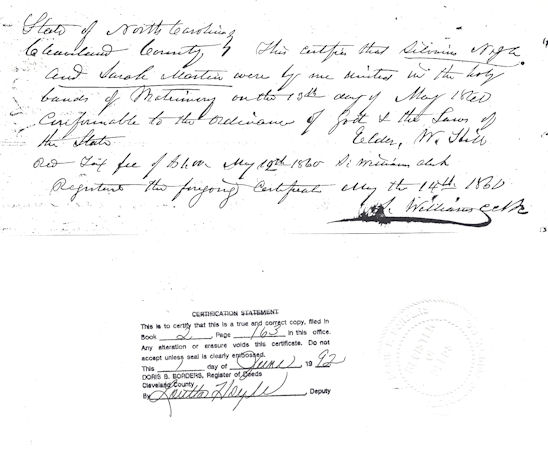 State of North Carolina
Cleaveland County } This certifies that Silvinus
and Sarah Martin were by me united in the holy
bands of Matrimony on the 13th day of May 1860
Conformable to the Ordinance of God & the Laws of
the State
Elder, W. Hill
Tax fee of $1.00 May 12th 1860 S. Williams clerk
Registered the forgoing Certificate May the 14th 1860
S. Williams
CERTIFICATION STATEMENT
This is to certify that this is a true and correct copy, filed in
Book 2, Page 163 in this office.
Any alteration or erasure voids this certificate. Do not
accept unless seal is clearly embossed.
This 1 day of June 1992
DORIS B. BORDERS, Register of Deeds
Cleveland County
By Deputy